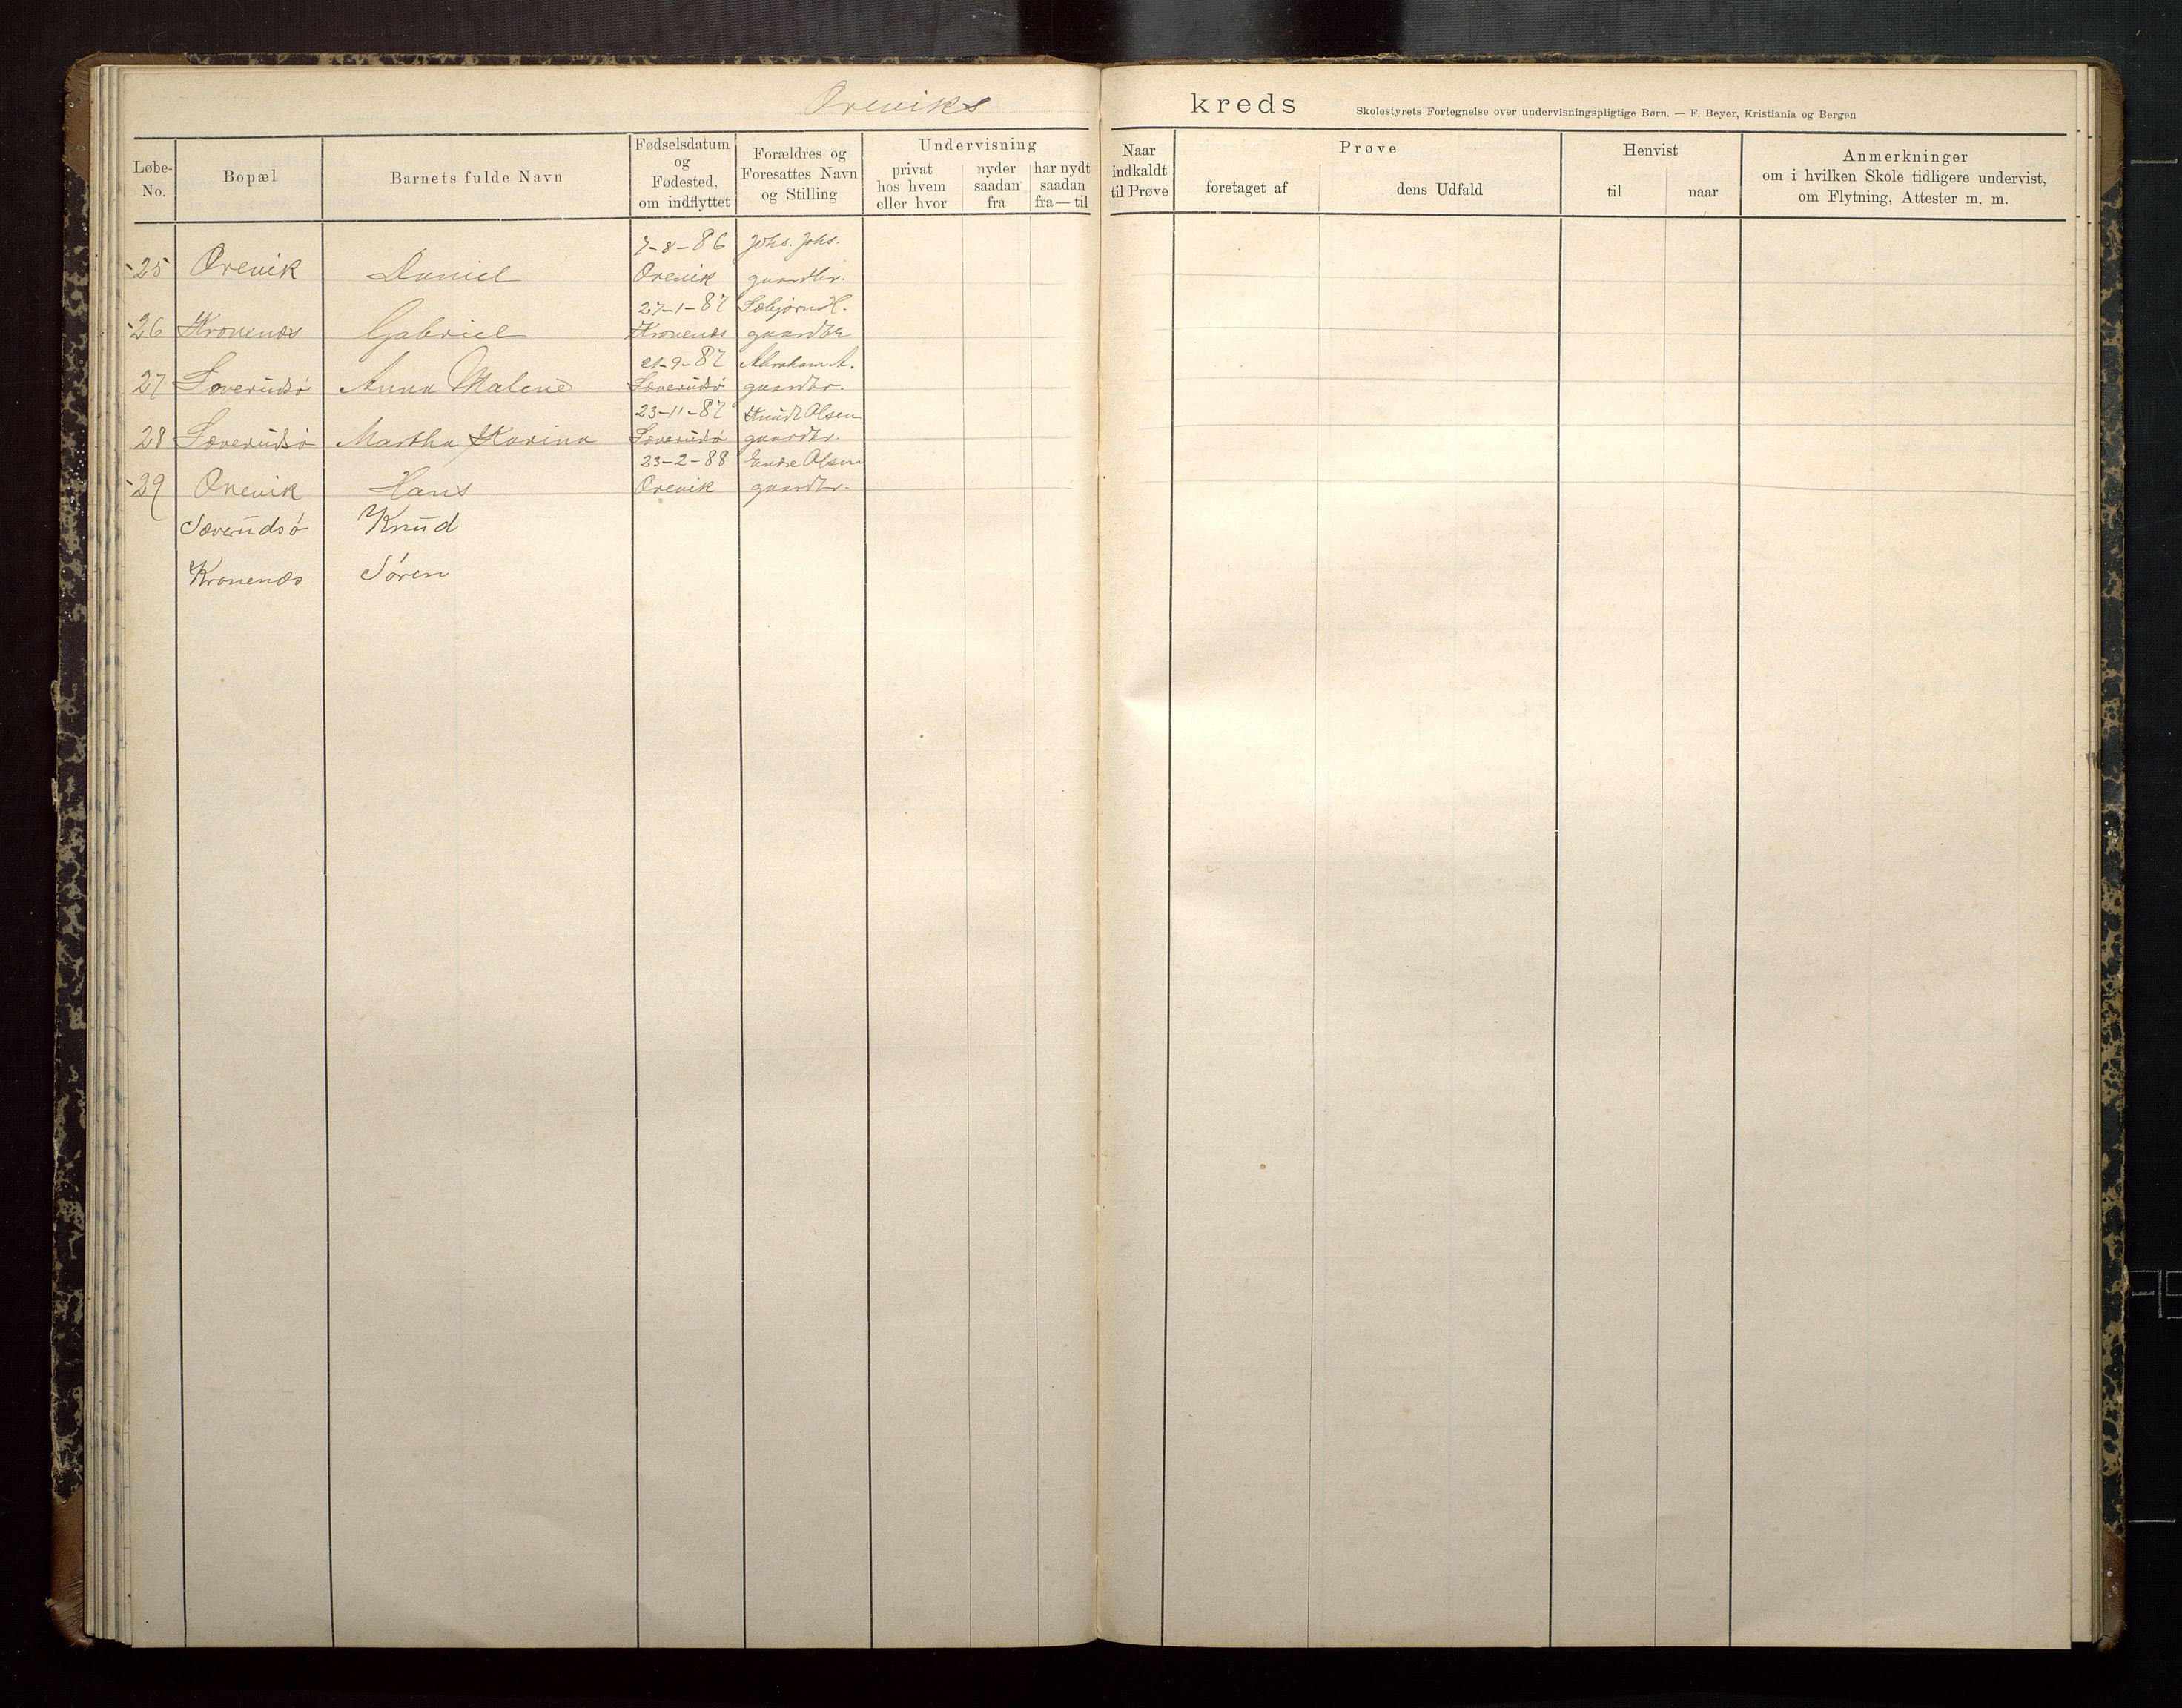 Øreviks kreds Skolestyrets Fortegnelse over undervisningspligtige Børn. — F. Beyer, Kristiania og Bergen
Løbe-No.
Bopæl
Barnets fulde Navn
Fødselsdatum og Fødested, om indflyttet
Forældres og Foresattes Navn og Stilling
Undervisning
privat hos hvem eller hvor
nyder saadan fra
har nydt saadan fra — til
Naar indkaldt til Prøve
Prøve
foretaget af
dens Udfald
Henvist
til
naar
Anmerkninger
om i hvilken Skole tidligere undervist,
om Flytning, Attester m. m.
7-8-86 Johs. Johs.
25 Ørevik Daniel Ørevik gaardbr.
27-1-87 Sæbjørn H.
26 Kronenæs Gabriel Kronenæs gaardbr
21-9-87 Abraham A.
27 Sæverudsø Anna Malene Sæverudsø gaardbr.
23-11-87 Knud Olsen
28 Sæverudsø Martha Karina Sæverudsø gaardbr.
23-2-88 Endre Olsen
29 Ørevik Hans Ørevik gaardbr.
Sæverudsø Knud
Kronenæs Søren